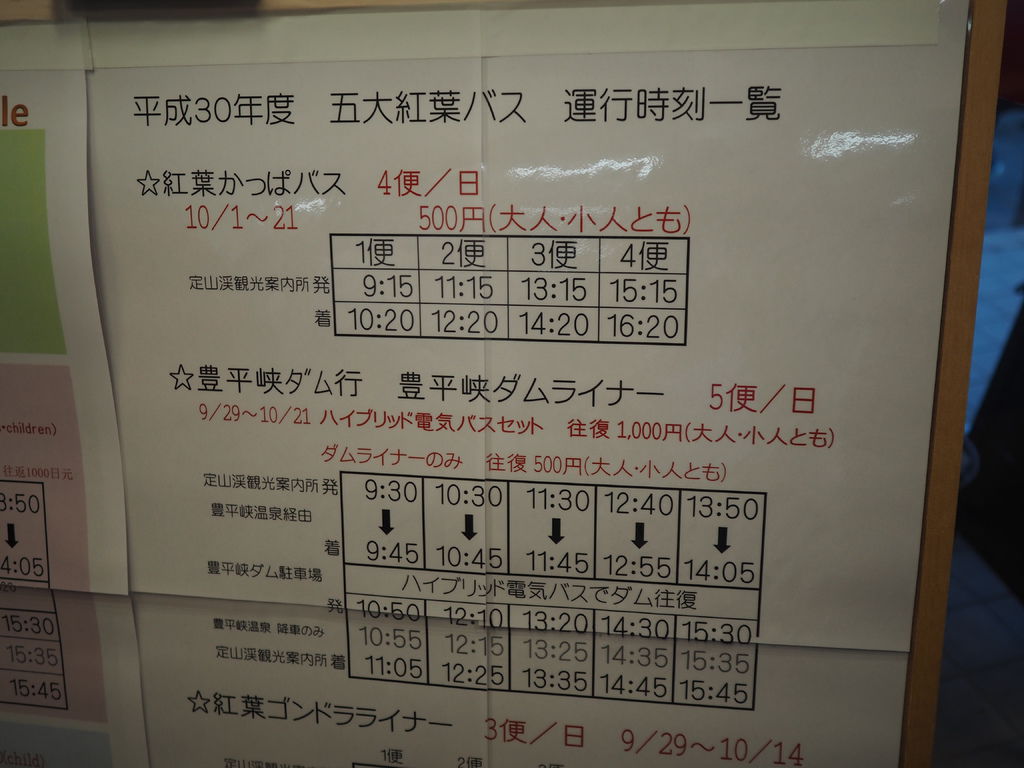 le
平成30年度 五大紅葉バス 運行時刻一覧
☆紅葉かっぱバス 4便／日
10/1～21 500円(大人･小人とも)
1便 2便 3便 4便
定山渓観光案内所 発 9:15 11:15 13:15 15:15
着 10:20 12:20 14:20 16:20
☆豊平峡ダム行 豊平峡ダムライナー 5便／日
9/29～10/21 ハイブリッド電気バスセット 往復 1,000円(大人･小人とも)
ダムライナーのみ 往復 500円(大人･小人とも)
定山渓観光案内所 発 9:30 10:30 11:30 12:40 13:50
豊平峡温泉経由 ⬇ ⬇ ⬇ ⬇ ⬇
着 9:45 10:45 11:45 12:55 14:05
豊平峡ダム駐車場 ハイブリッド電気バスでダム往復
発 10:50 12:10 13:20 14:30 15:30
豊平峡温泉 降車のみ 10:55 12:15 13:25 14:35 15:35
定山渓観光案内所 着 11:05 12:25 13:35 14:45 15:45
☆紅葉ゴンドラライナー 3便／日 9/29～10/14
1便 2便
定山渓観光案内所 発
･children)
往返1000日元
3:50
⬇
4:05
15:30
15:35
15:45
(child)